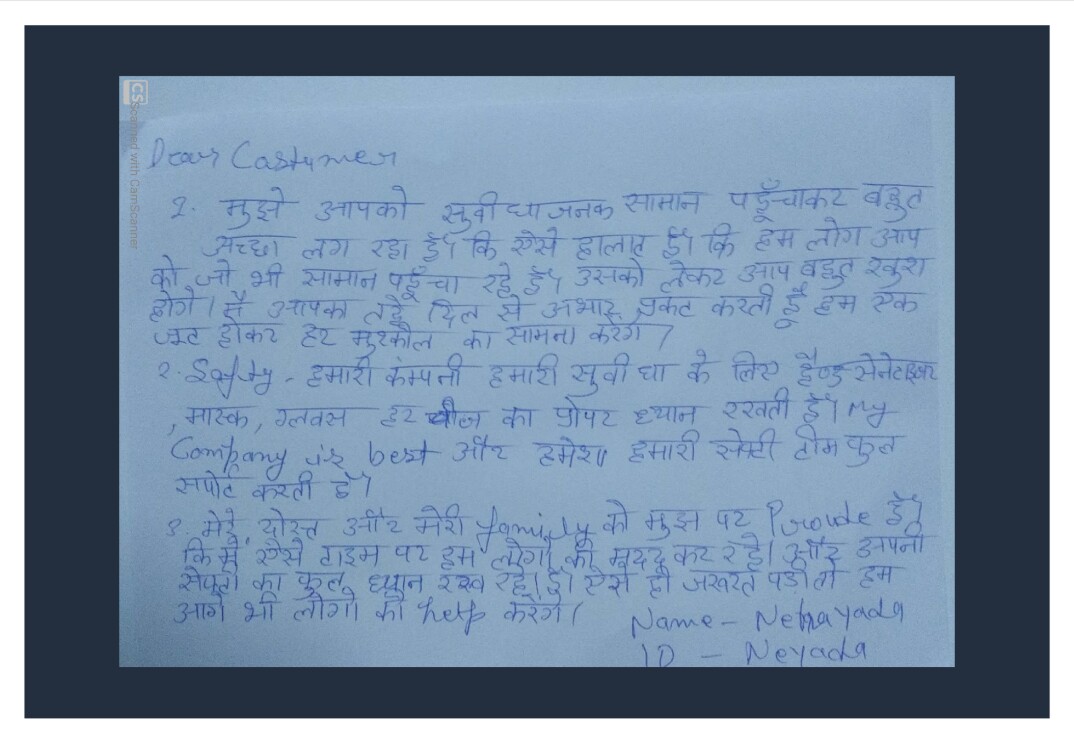 CS Scanned with CamScanner
Dear Castumer
1. मुझे आपको सुवीधाजनक सामान पहूँचाकर बहुत
अच्छा लग रहा है। कि ऐसे हालात है। कि हम लोग आप
को जो भी सामान पहूँचा रहे है। उसको लेकर आप बहुत खुश
होगे। मैं आपका तहे दिल से अभार प्रकट करती हूँ हम एक
जूट होकर हर मुश्कील का सामना करेगे।
2. Safty - हमारी कंम्पनी हमारी सुवीधा के लिए हैण्ड सेनेटाइजर
, मास्क, ग्लवस हर चीज का प्रोपर ध्यान रखती है। My
Company is best और हमेशा हमारी सेफ्टी टीम फुल
सपोर्ट करती है।
3. मेरे दोस्त और मेरी family को मुझ पर Proude है।
कि मैं ऐसे टाइम पर हम लोगो की मदद कर रहे। और अपनी
सेफ्टी का फुल ध्यान रख रहे है। ऐसे ही जरूरत पडी तो हम
आगे भी लोगो की help करेगे।
Name - Neha yada
ID - Neyada